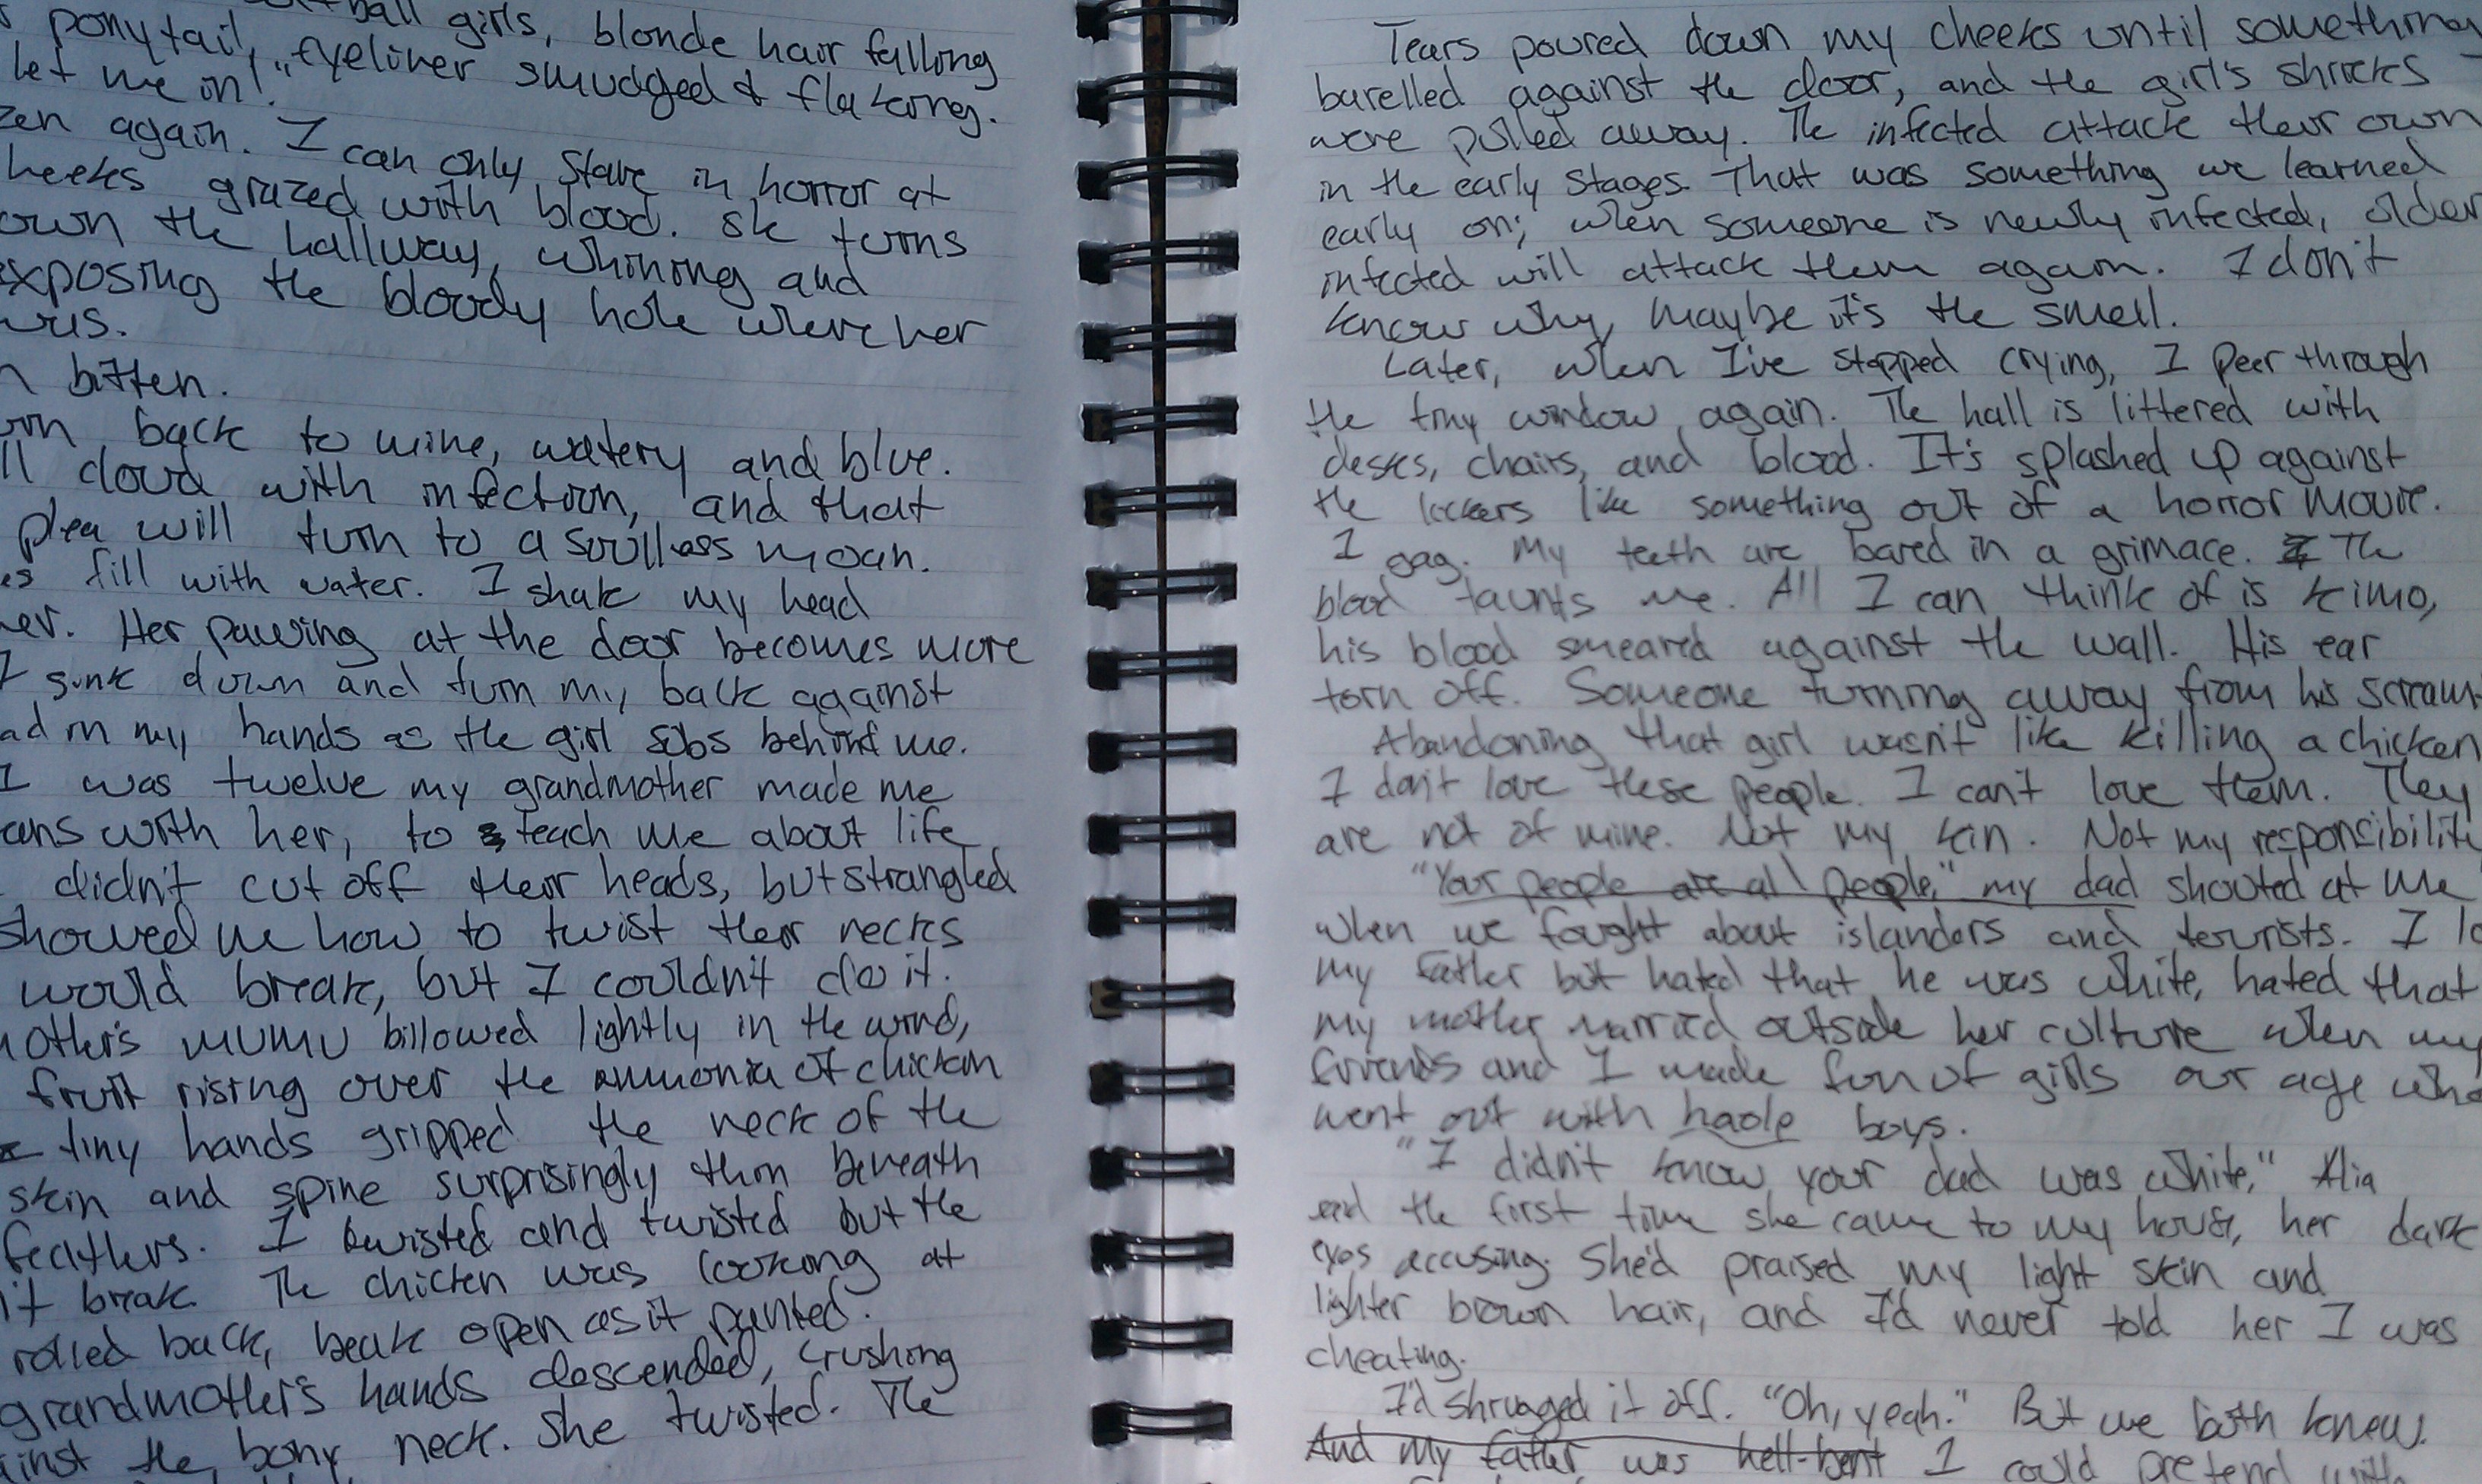 ball girls, blonde hair falling
ponytail, eyeliner smudged & flaking.
let me in!"
again. I can only stare in horror at
heeks grazed with blood. She turns
own the hallway, whining and
exposing the bloody hole where her
was.
n bitten.
back to mine, watery and blue.
ll cloud with infection, and that
plea will turn to a soulless moan.
es fill with water. I shake my head
er. Her pawing at the door becomes more
I sink down and turn my back against
ad in my hands as the girl sobs behind me.
I was twelve my grandmother made me
ens with her, to teach me about life
didn't cut off their heads, but strangled
showed me how to twist their necks
would break, but I couldn't do it.
mother's mumu billowed lightly in the wind,
fruit rising over the ammonia of chicken
tiny hands gripped the neck of the
skin and spine surprisingly thin beneath
feathers. I twisted and twisted but the
it break. The chicken was looking at
rolled back, beak open as it panted.
grandmother's hands descended, crushing
ainst the bony neck. She twisted. The
Tears poured down my cheeks until something
barelled against the door, and the girl's shrieks
were pulled away. The infected attack their own
in the early stages. That was something we learned
early on; when someone is newly infected, older
infected will attack them again. I don't
know why, maybe it's the smell.
Later, when I've stopped crying, I peer through
the tiny window again. The hall is littered with
desks, chairs, and blood. It's splashed up against
the lockers like something out of a horror movie.
I gag. My teeth are bared in a grimace. The
blood taunts me. All I can think of is Kimo,
his blood smeared against the wall. His ear
torn off. Someone turning away from his screams
Abandoning that girl wasn't like killing a chicken
I don't love these people. I can't love them. They
are not of mine. Not my kin. Not my responsibilit
"Your people are all people," my dad shouted at me
when we fought about islanders and tourists. I lo
my father but hated that he was white, hated that
my mother married outside her culture when my
friends and I made fun of girls our age who
went out with haole boys.
"I didn't know your dad was white," Alia
said the first time she came to my house, her dark
eyes accusing. She'd praised my light skin and
lighter brown hair, and I'd never told her I was
cheating.
I'd shrugged it off. "Oh, yeah." But we both knew.
And my father was hell-bent I could pretend with